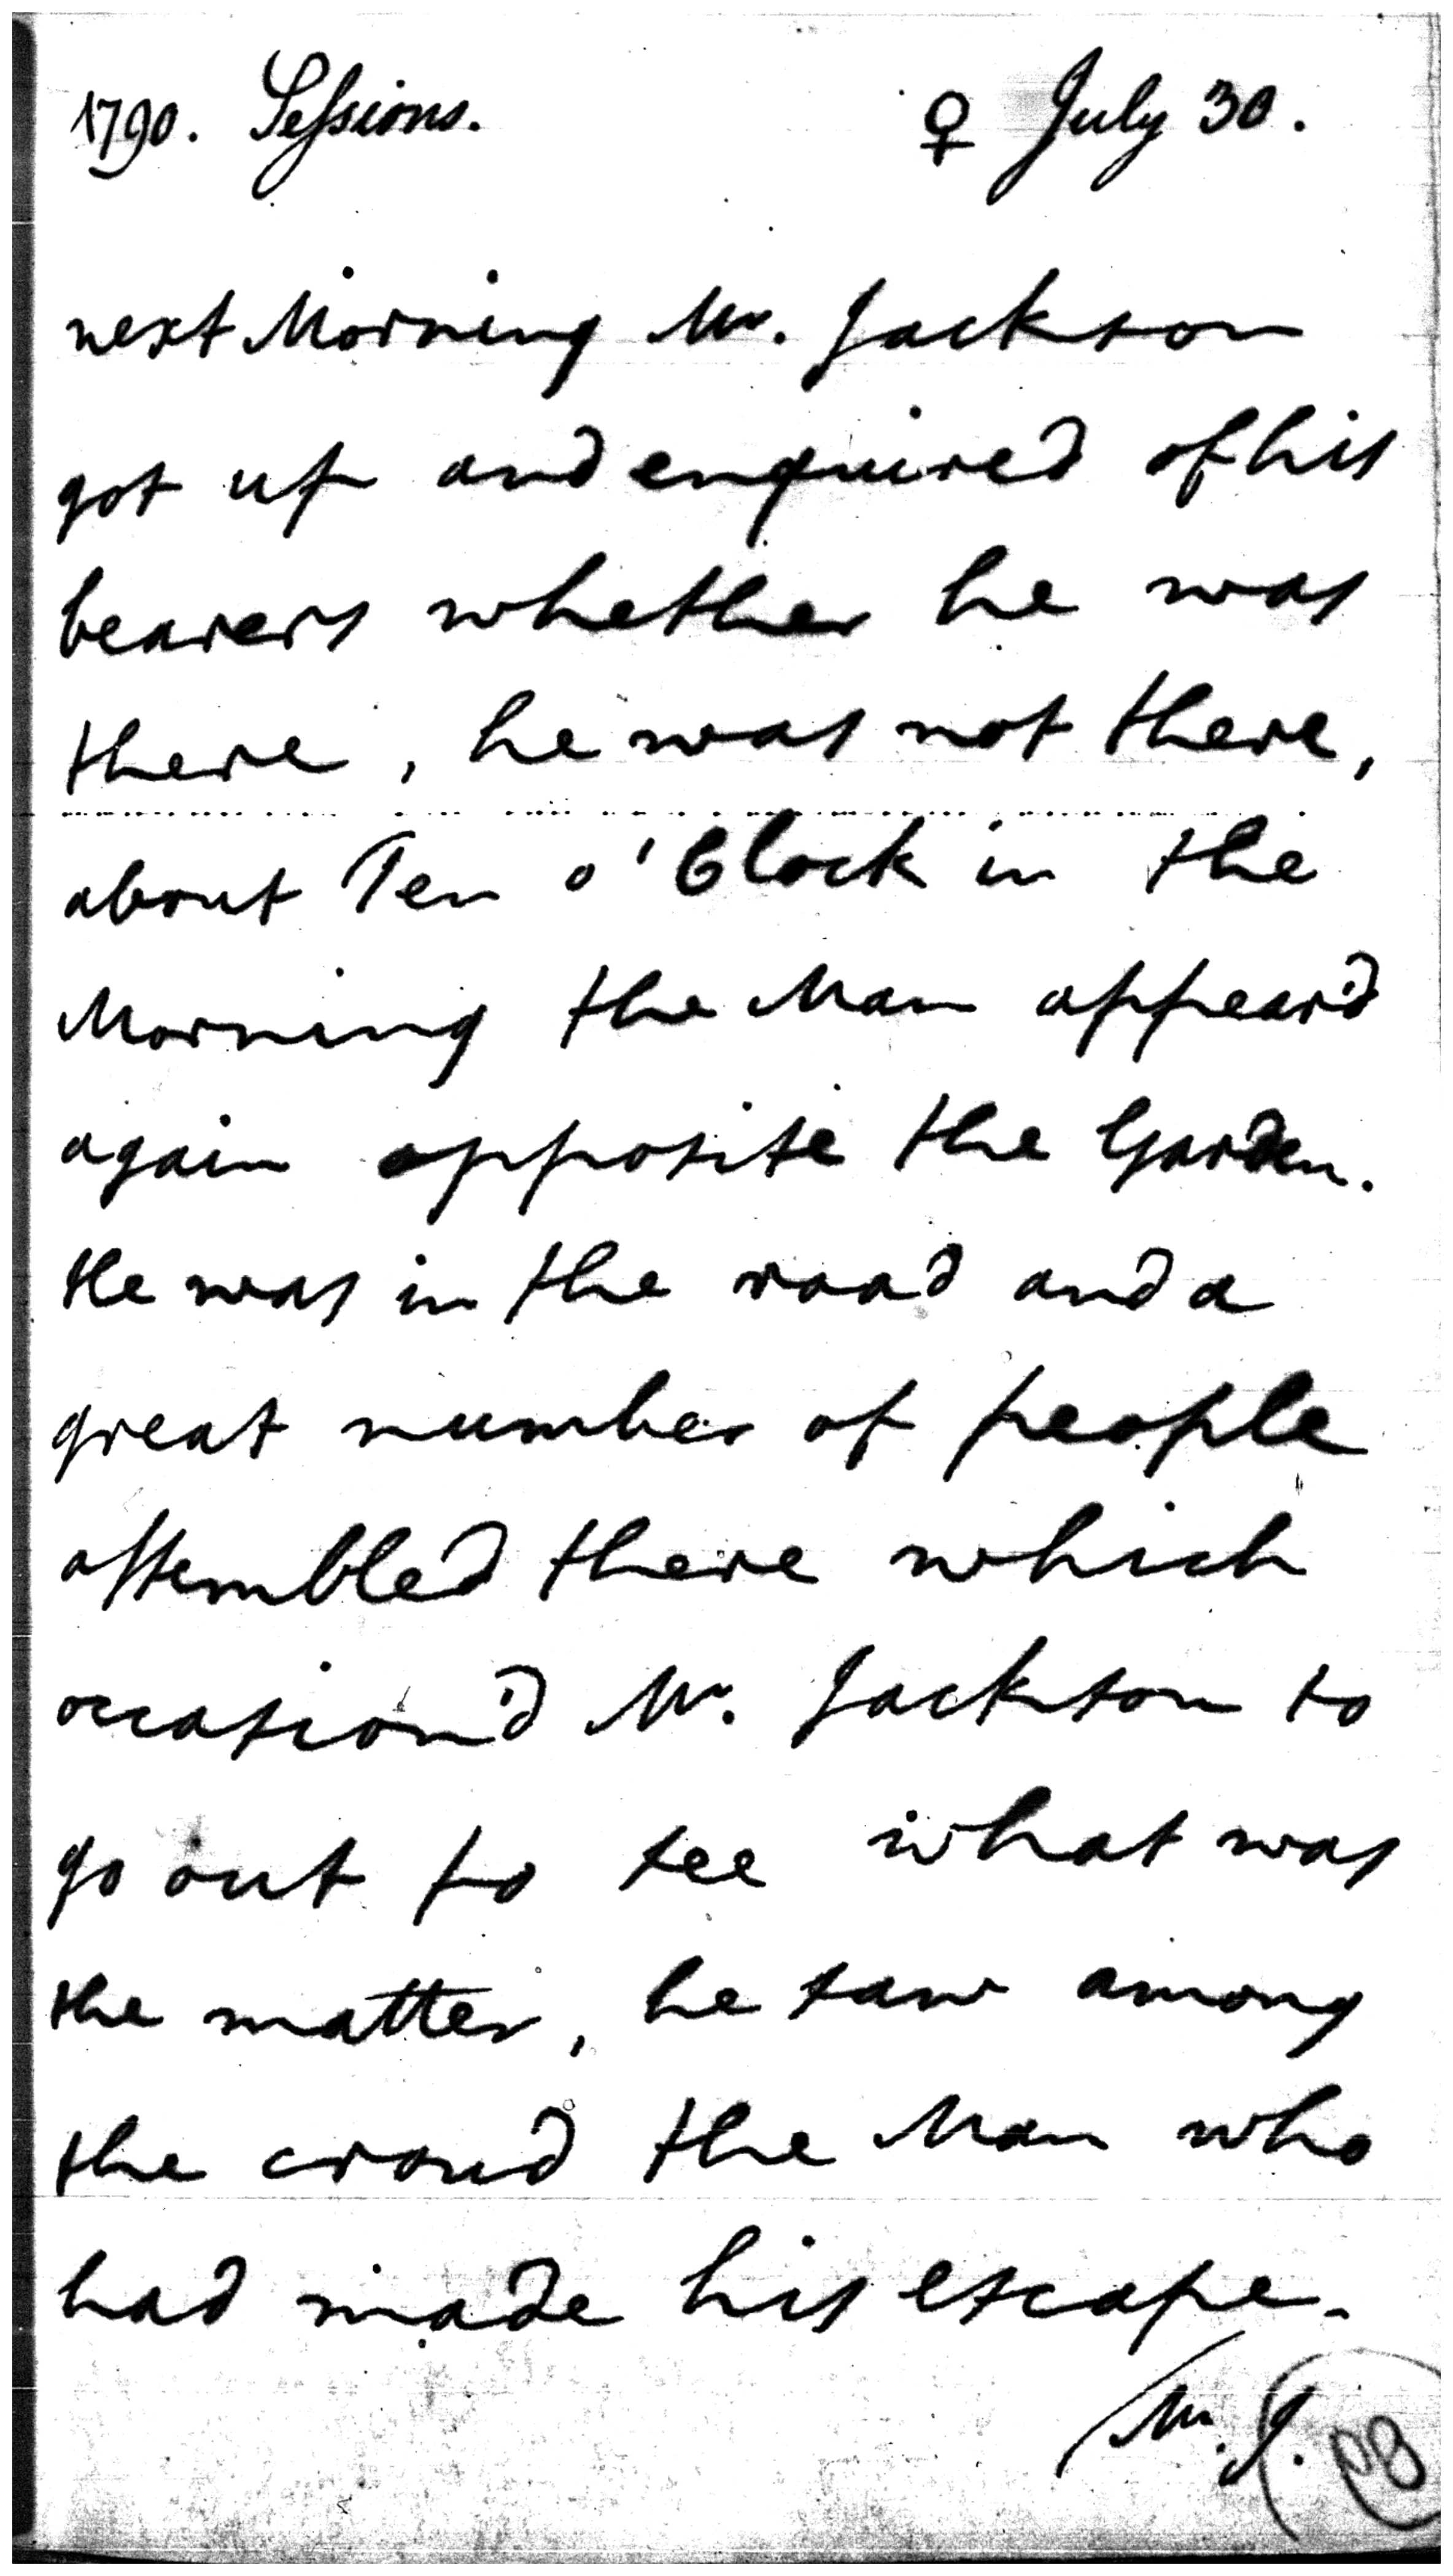 1790. Sessions. ♀ July 30.
next Morning Mr. Jackson
got up and enquired of his
bearers whether he was
there, he was not there,
about Ten o'Clock in the
Morning the Man appear'd
again opposite the Garden.
He was in the road and a
great number of people
assembled there which
occasion'd Mr. Jackson to
go out to see what was
the matter, he saw among
the croud the Man who
had made his escape.
Mr. J.